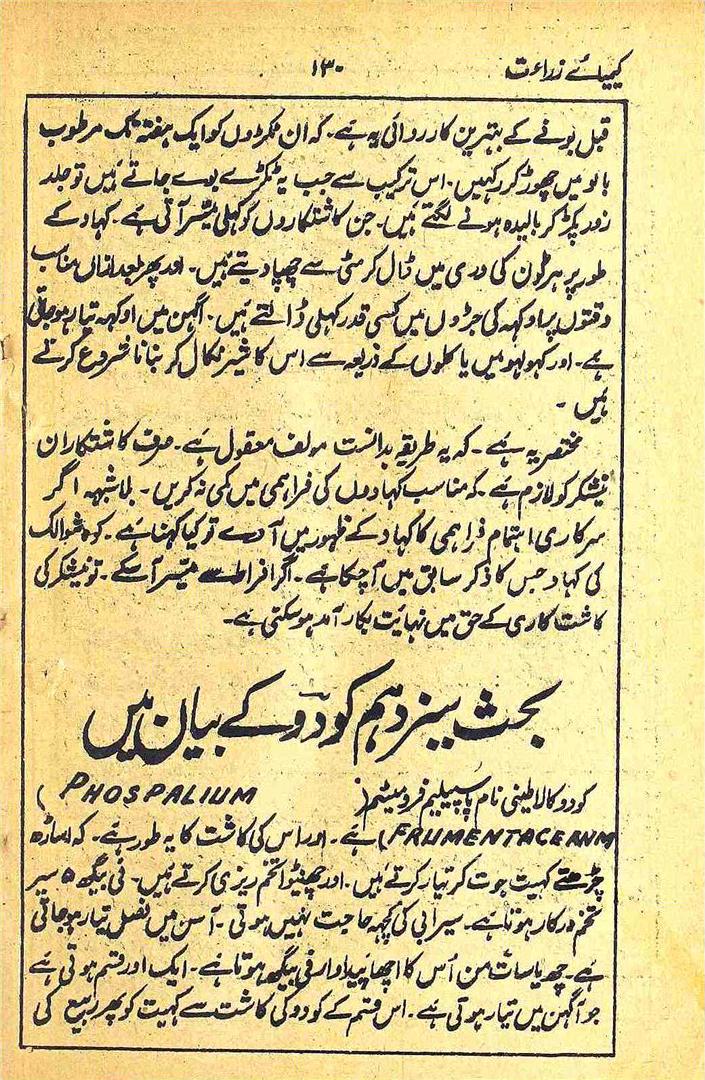 کیمیائے زراعت ۱۳۰
قبل بونے کے بہترین کارروائی یہ ہے۔ کہ ان ٹکڑوں کو ایک ہفتہ تک مرطوب
بالو میں چھوڑ کر رکہیں۔ اس ترکیب سے جب یہ ٹکڑے بوے جاتے ہیں تو جلد
زور پکڑ کر بالیدہ ہونے لگتے ہیں۔ جن کاشتکاروں کو کہلی میسّر آتی ہے۔ کہاد کے
طور پر ہر طون کی دری میں ڈال کر مٹی سے چھپا دیتے ہیں۔ اور پھر بعد ازاں مناسب
وقتوں پر اوکہہ کی جڑوں میں کسی قدر کہلی ڈالتے ہیں۔ اگہن میں اوکہہ تیار ہو جاتی
ہے۔ اور کہولہو میں یا کلوں کے ذریعہ سے اس کا شیر نکال کر بنانا شروع کرتے
ہیں۔
مختصر یہ ہے۔ کہ یہ طریقہ بدانست مولف معقول ہے۔ صرف کاشتکاران
نیشکر کو لازم ہے۔ کہ مناسب کہادوں کی فراہمی میں کمی نہ کریں۔ بلاشبہہ اگر
سرکاری اہتمام فراہمی کا کہاد کے ظہور میں آوے تو کیا کہنا ہے۔ کوہ شوالک
کی کہاد جس کا ذکر سابق میں آ چکا ہے۔ اگر افراط سے میسّر آسکے۔ تو نیشکر کی
کاشت کاری کے حق میں نہایت بکار آمد ہو سکتی ہے۔
بحث سیزدہم کودو کے بیان میں
کودو کا لاطینی نام پاسپیلیم فرومینٹیم (PHOSPALIUM)
(FRUMENTACEANM) ہے۔ اور اس کی کاشت کا یہ طور ہے۔ کہ اساڑہ
چڑھتے کہیت جوت کر تیار کرتے ہیں۔ اور چھینٹوا تخم ریزی کرتے ہیں۔ فی بیگھ ۵ سیر
تخم درکار ہوتا ہے۔ سیرابی کی کچہہ حاجت نہیں ہوتی۔ آسن میں فصل تیار ہو جاتی
ہے۔ چھ یا سات من اُس کا اچھا پیداوار فی بیگھ ہوتا ہے۔ ایک اور قسم ہوتی ہے
جو اگہن میں تیار ہوتی ہے۔ اس قسم کے کودو کی کاشت سے کہیت کو پھر ربیع کی